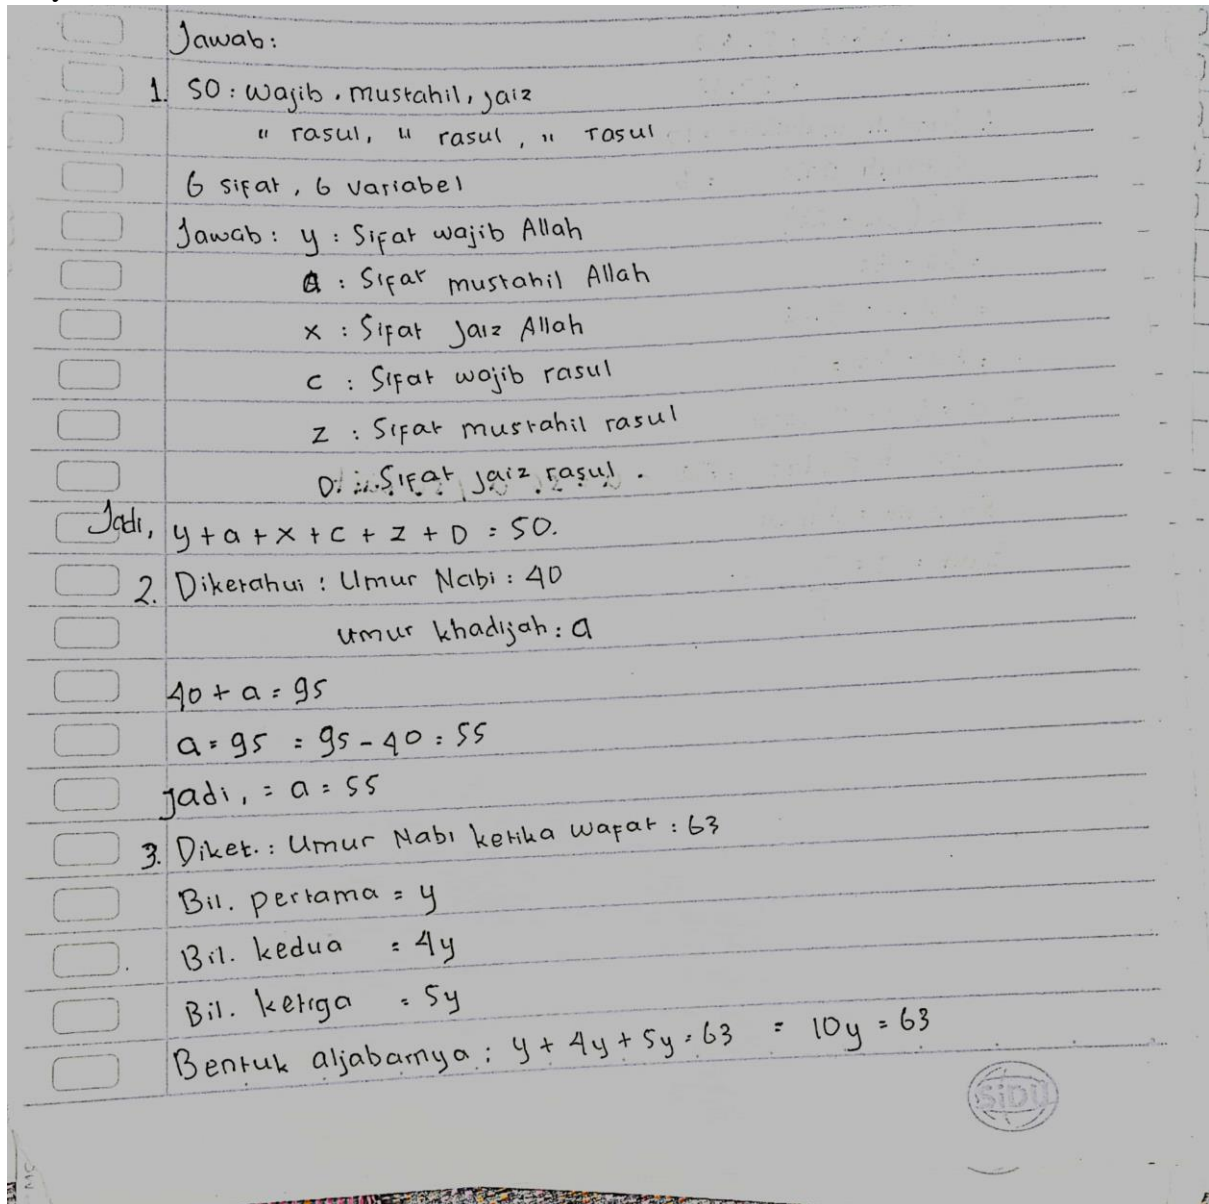 Jawab:
1. 50: wajib, mustahil, jaiz
" rasul, " rasul, " rasul
6 sifat, 6 variabel
Jawab: y : Sifat wajib Allah
a : Sifat mustahil Allah
x : Sifat Jaiz Allah
c : Sifat wajib rasul
z : Sifat mustahil rasul
D : Sifat jaiz rasul.
Jadi, y + a + x + c + z + D = 50.
2. Diketahui : Umur Nabi : 40
umur khadijah : a
40 + a = 95
a = 95 = 95 - 40 = 55
jadi, = a = 55
3. Diket. : Umur Nabi ketika wafat : 63
Bil. pertama = y
Bil. kedua = 4y
Bil. ketiga = 5y
Bentuk aljabarnya : y + 4y + 5y = 63 = 10y = 63
SIDU